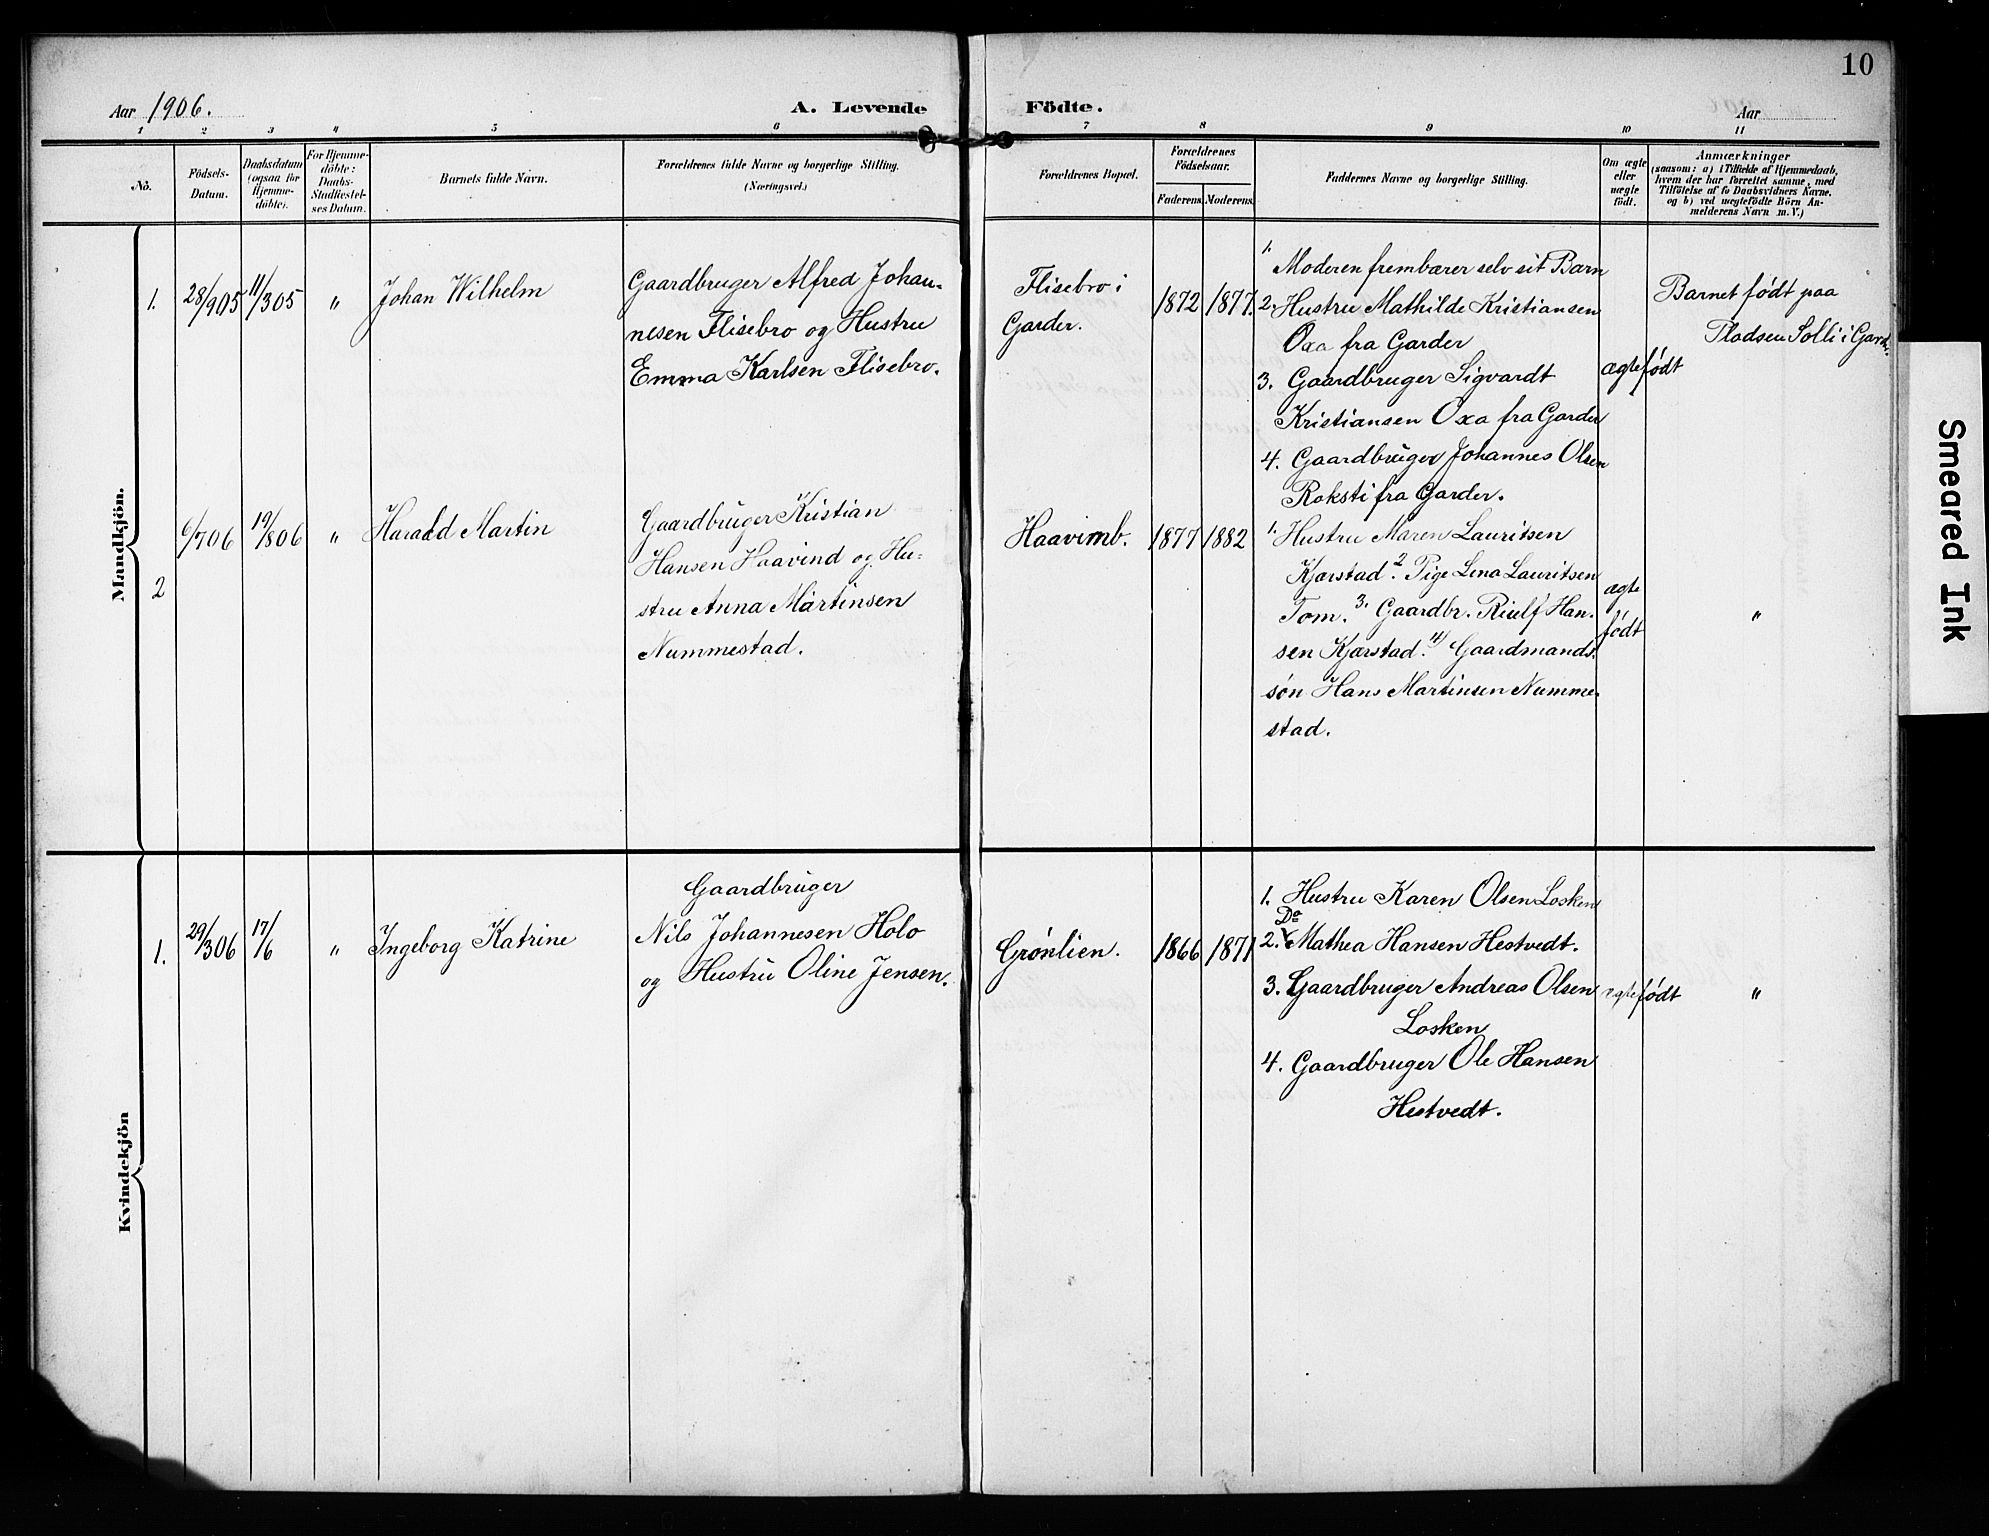 10
Aar 1906.
A. Levende Födte.
Aar
1 2 3 4 5 6 7 8 9 10 11
No.
Födsels-
Datum.
Daabsdatum
(ogsaa for
Hjemme-
döbte).
For Hjemme-
döbte:
Daabs-
Stadfæstel-
ses Datum.
Barnets fulde Navn.
Forældrenes fulde Navne og borgerlige Stilling.
(Næringsvei.)
Forældrenes Bopæl.
Forældrenes
Födselsaar.
Faderens Moderens
Faddernes Navne og borgerlige Stilling.
Om ægte
eller
uægte
födt.
Anmærkninger
(saasom: a) i Tilfælde af Hjemmedaab,
hvem der har forrettet samme, med
Tilföielse af to Daabsvidners Navne,
og b) ved uægtefödte Börn An-
melderens Navn m. V.)
Mandkjön.
1.
28/905
11/305
"
Johan Wilhelm
Gaardbruger Alfred Johan-
nesen Flisebro og Hustru
Emma Karlsen Flisebro.
Flisebro i
Garder.
1872
1877.
1. Moderen frembærer selv sit Barn
2. Hustru Mathilde Kristiansen
Oxa fra Garder
3. Gaardbruger Sigvardt
Kristiansen Oxa fra Garder
4. Gaardbruger Johannes Olsen
Roksti fra Garder.
ægtefødt
Barnet født paa
Pladsen Solli i Gard.
2
6/706
19/806
"
Harald Martin
Gaardbruger Kristian
Hansen Haavind og Hu-
stru Anna Martinsen
Nummestad.
Haavimb.
1877
1882
1. Hustru Maren Lauritsen
Kjærstad. 2. Pige Lena Lauritsen
Tom. 3. Gaardbr. Riulf Han-
sen Kjærstad. 4) Gaardmands-
søn Hans Martinsen Numme-
stad.
ægte
født
"
Kvindekjön
1.
29/306
17/6
"
Ingeborg Katrine
Gaardbruger
Nils Johannesen Holo
og Hustru Oline Jensen.
Grønlien.
1866
1871
1. Hustru Karen Olsen Losken
Do
2. Mathea Hansen Hestvedt.
3. Gaardbruger Andreas Olsen
Losken
4. Gaardbruger Ole Hansen
Hestvedt.
ægtefødt
"
Smeared Ink